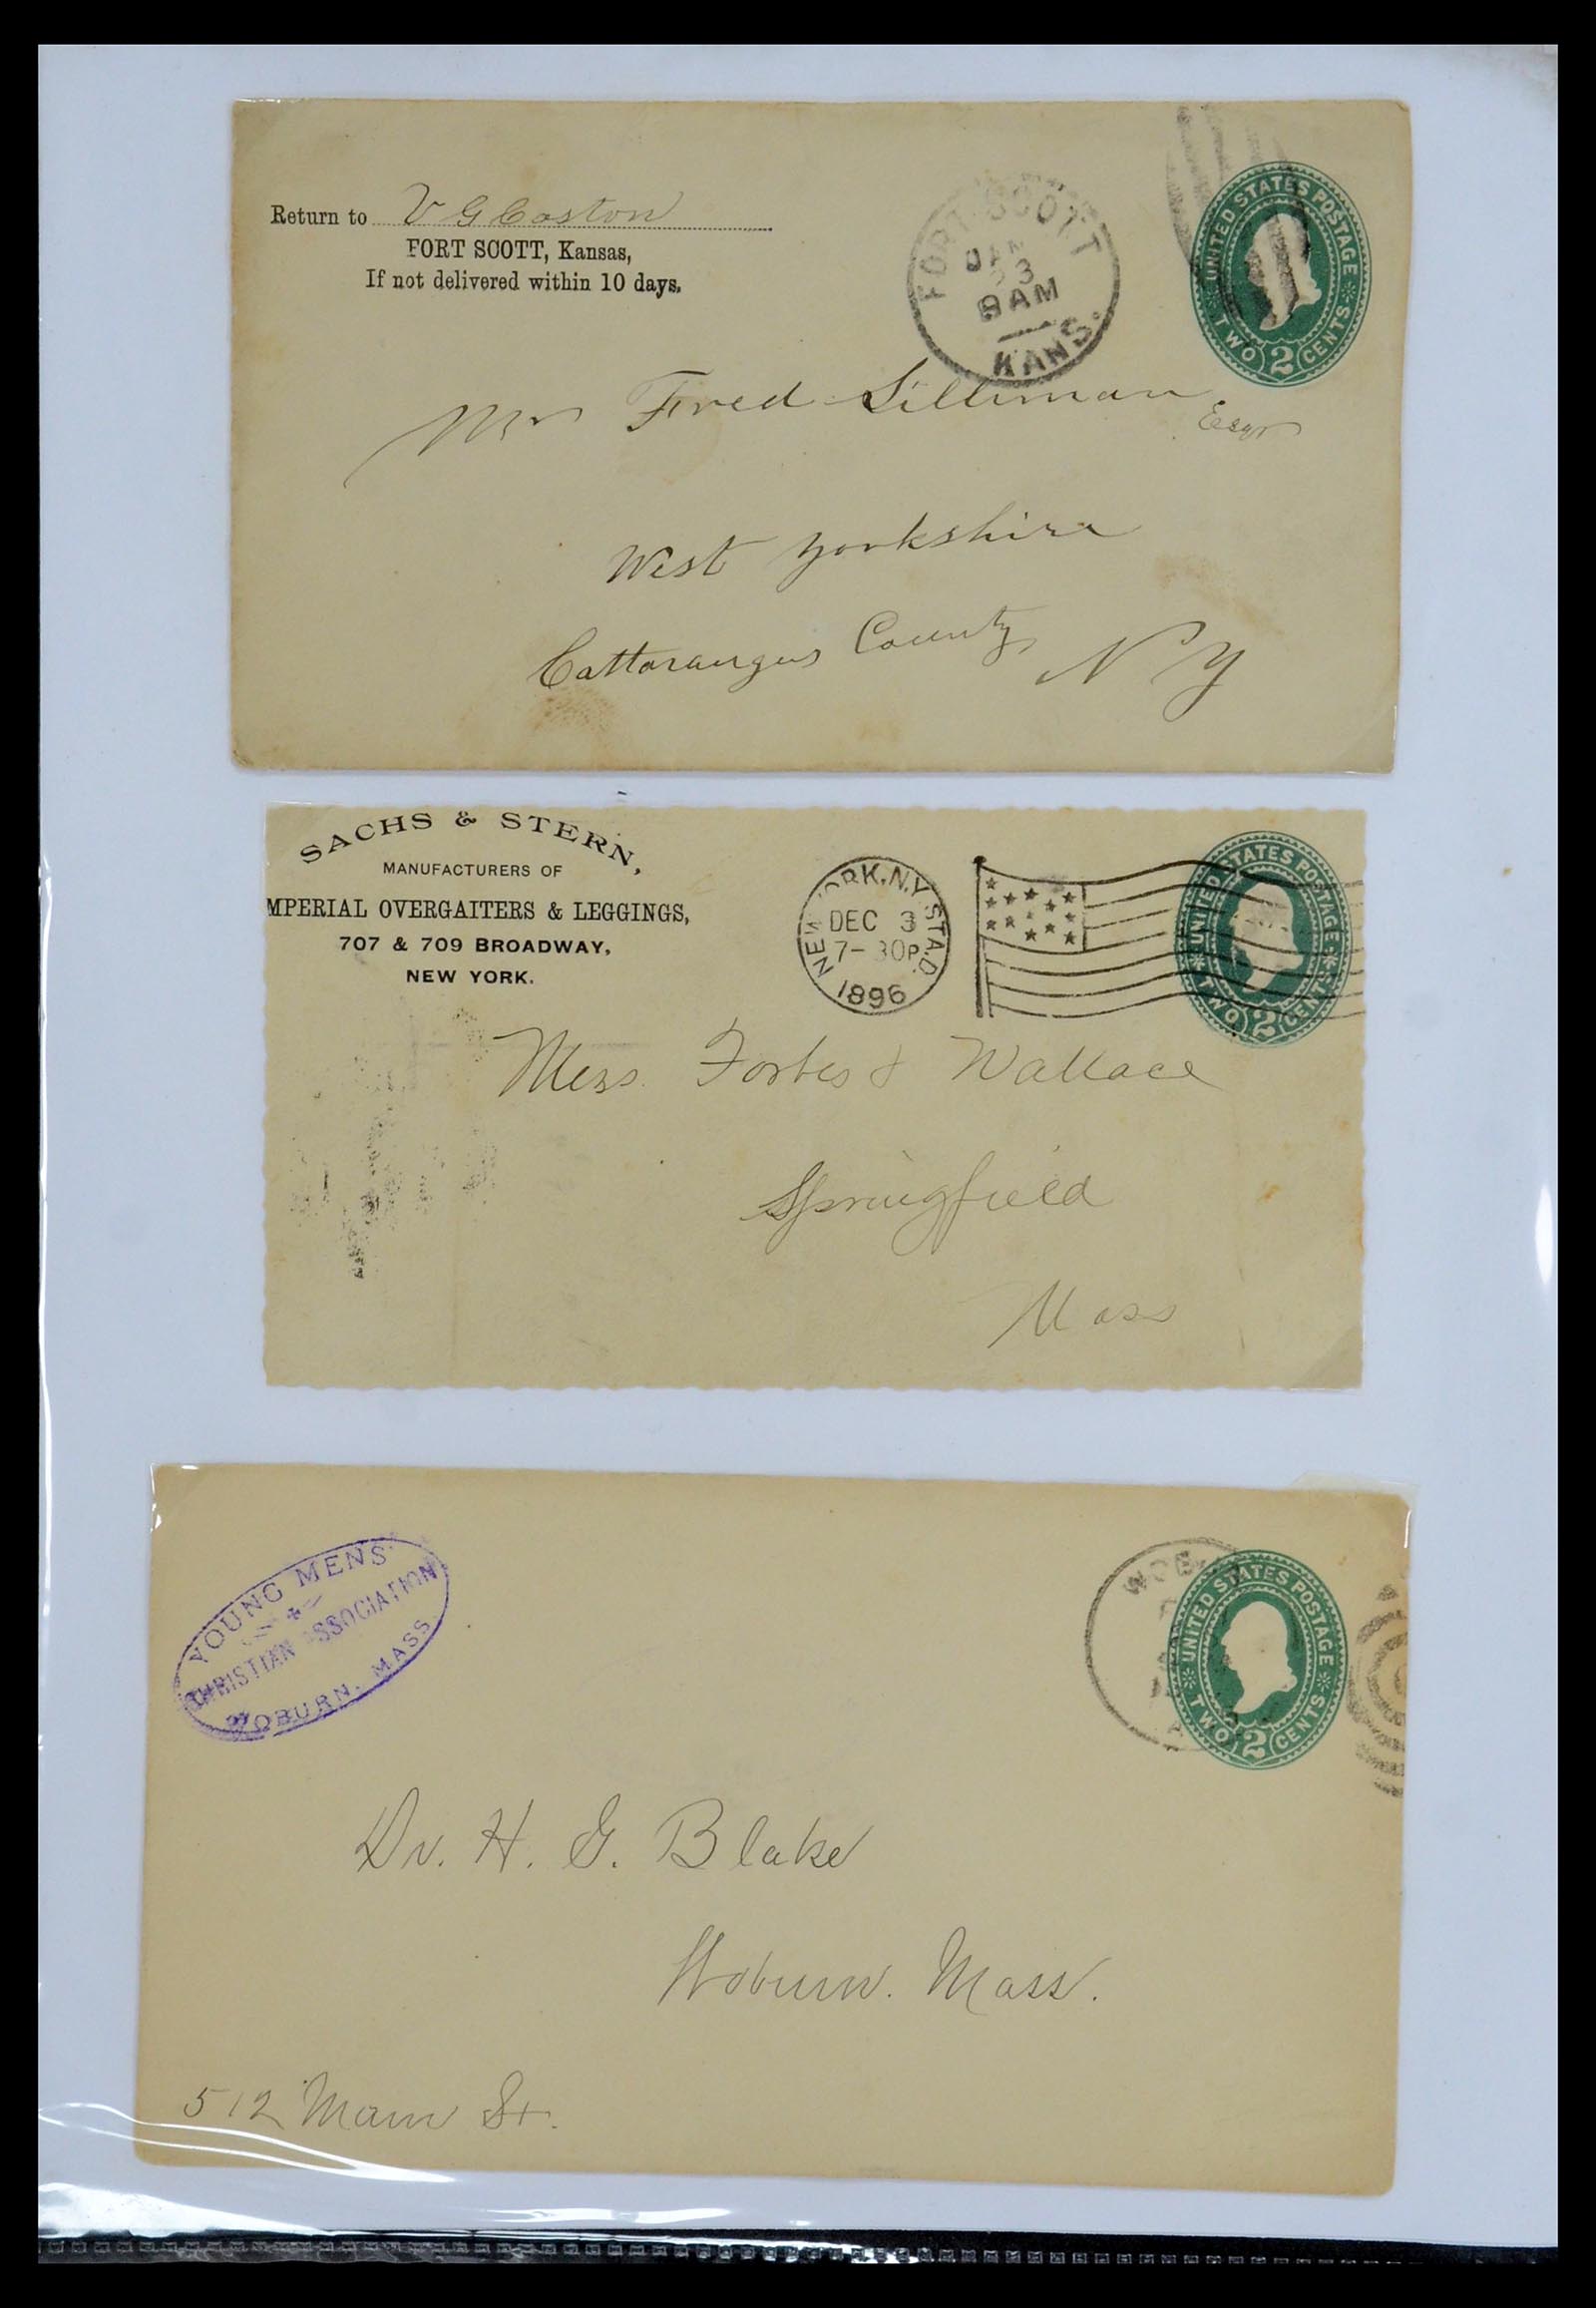 Return to V G Caston
FORT SCOTT, Kansas,
If not delivered within 10 days.
FORT SCOTT
JAN
9 AM
KANS.
UNITED STATES POSTAGE
TWO 2 CENTS
Mr Fred Silliman
Esqr
West Yorkshire
Cattaraugus County
N Y
SACHS & STERN,
MANUFACTURERS OF
MPERIAL OVERGAITERS & LEGGINGS,
707 & 709 BROADWAY,
NEW YORK.
NEW YORK, N.Y. STA. D.
DEC 3
7-30P
1896
UNITED STATES POSTAGE
TWO 2 CENTS
Mess. Forbes & Wallace
Springfield
Mass
YOUNG MENS
CHRISTIAN ASSOCIATION
WOBURN, MASS
UNITED STATES POSTAGE
TWO 2 CENTS
Dr. H. G. Blake
Woburn. Mass.
512 Main St.